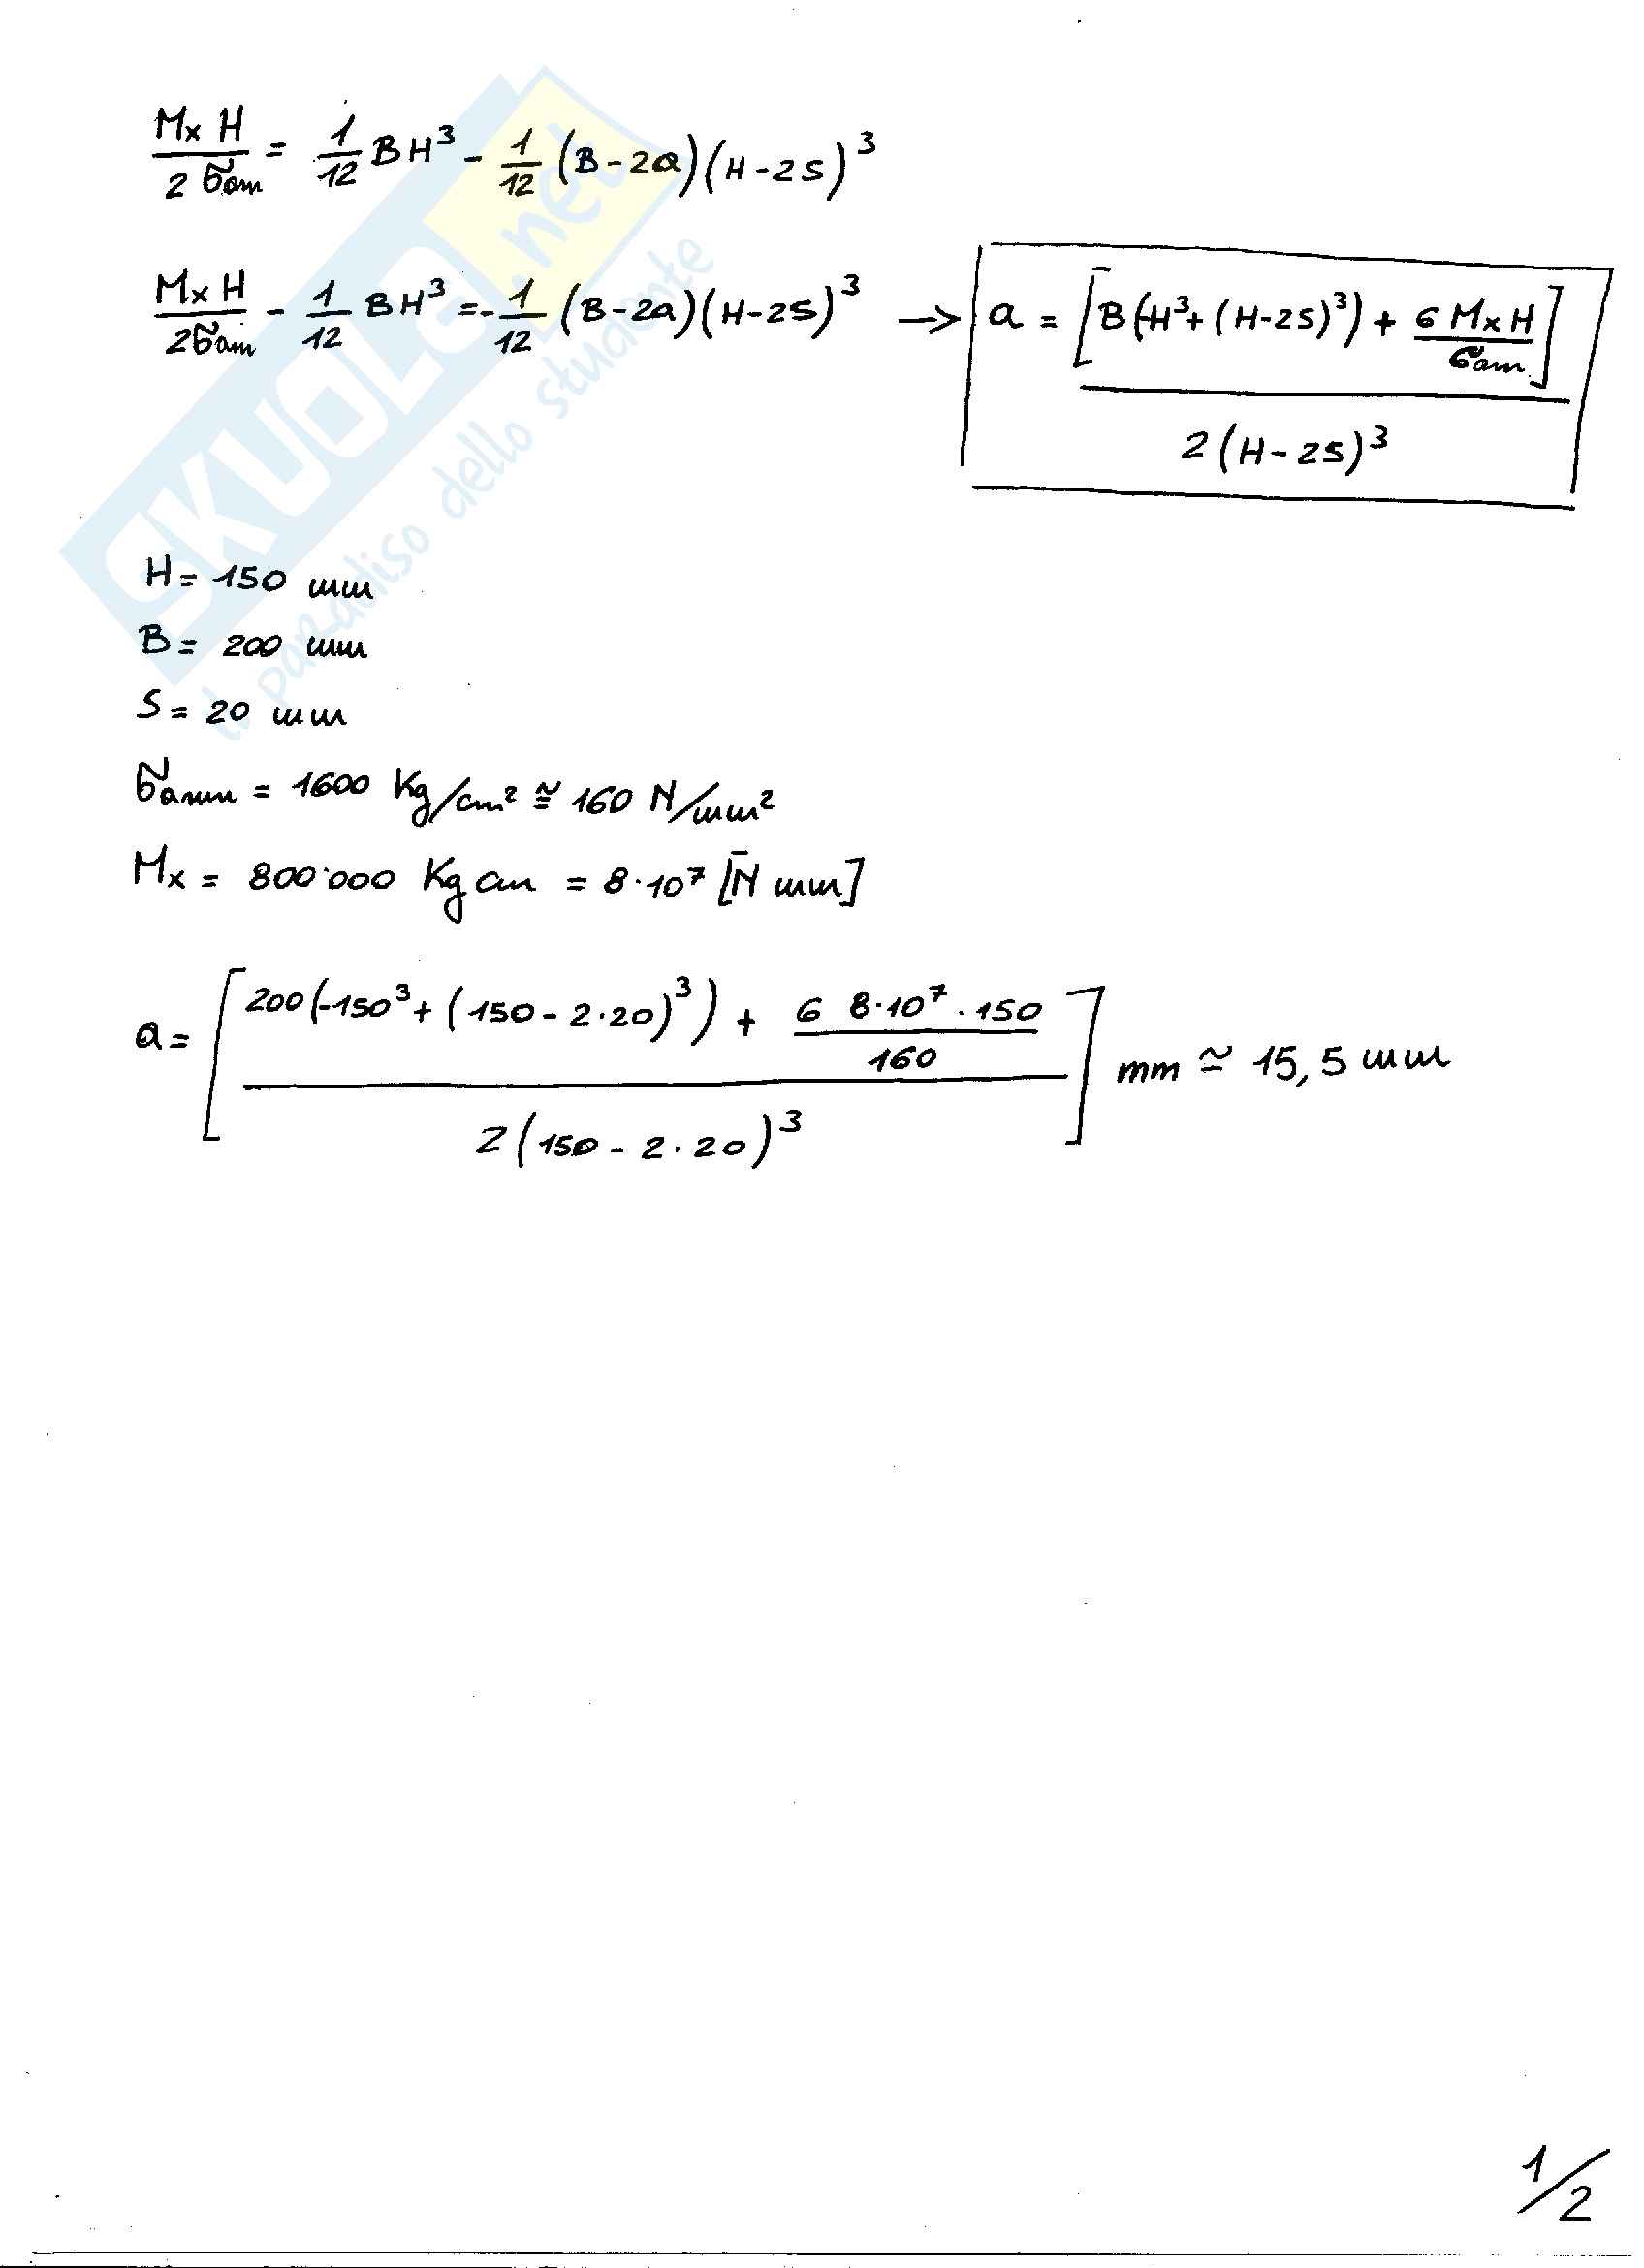 Mx H / 2 σam = 1/12 BH³ - 1/12 (B-2a)(H-2s)³
Mx H / 2σam - 1/12 BH³ = -1/12 (B-2a)(H-2s)³ → a = [B(-H³+(H-2s)³) + 6 Mx H / σam] / 2(H-2s)³
H = 150 mm
B = 200 mm
S = 20 mm
σamm = 1600 Kg/cm² ≅ 160 N/mm²
Mx = 800'000 Kg cm = 8·10⁷ [N mm]
a = [200(-150³+(150-2·20)³) + 6 8·10⁷·150 / 160 / 2(150-2·20)³] mm ≃ 15,5 mm
1/2
SKUOLA.net
il paradiso dello studente